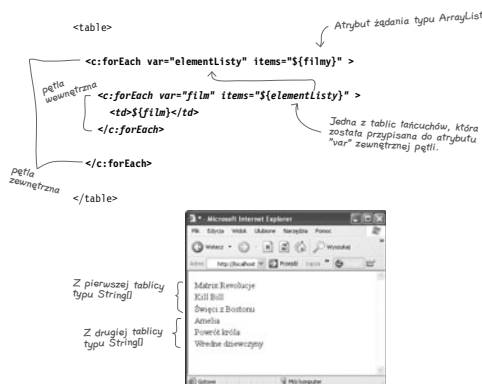 <table>
Atrybut żądania typu ArrayList
<c:forEach var="elementListy" items="${filmy}" >
pętla
wewnętrzna
<c:forEach var="film" items="${elementListy}" >
<td>${film}</td>
</c:forEach>
Jedna z tablic łańcuchów, która
została przypisana do atrybutu
"var" zewnętrznej pętli.
</c:forEach>
pętla
zewnętrzna
</table>
Microsoft Internet Explorer
Plik Edycja Widok Ulubione Narzędzia Pomoc
Wstecz Wyszukaj
Adres Przejdź Łącza
Z pierwszej tablicy
typu String[]
Matrix Rewolucje
Kill Bill
Święci z Bostonu
Z drugiej tablicy
typu String[]
Amelia
Powrót króla
Wredne dziewczyny
Gotowe Mój komputer